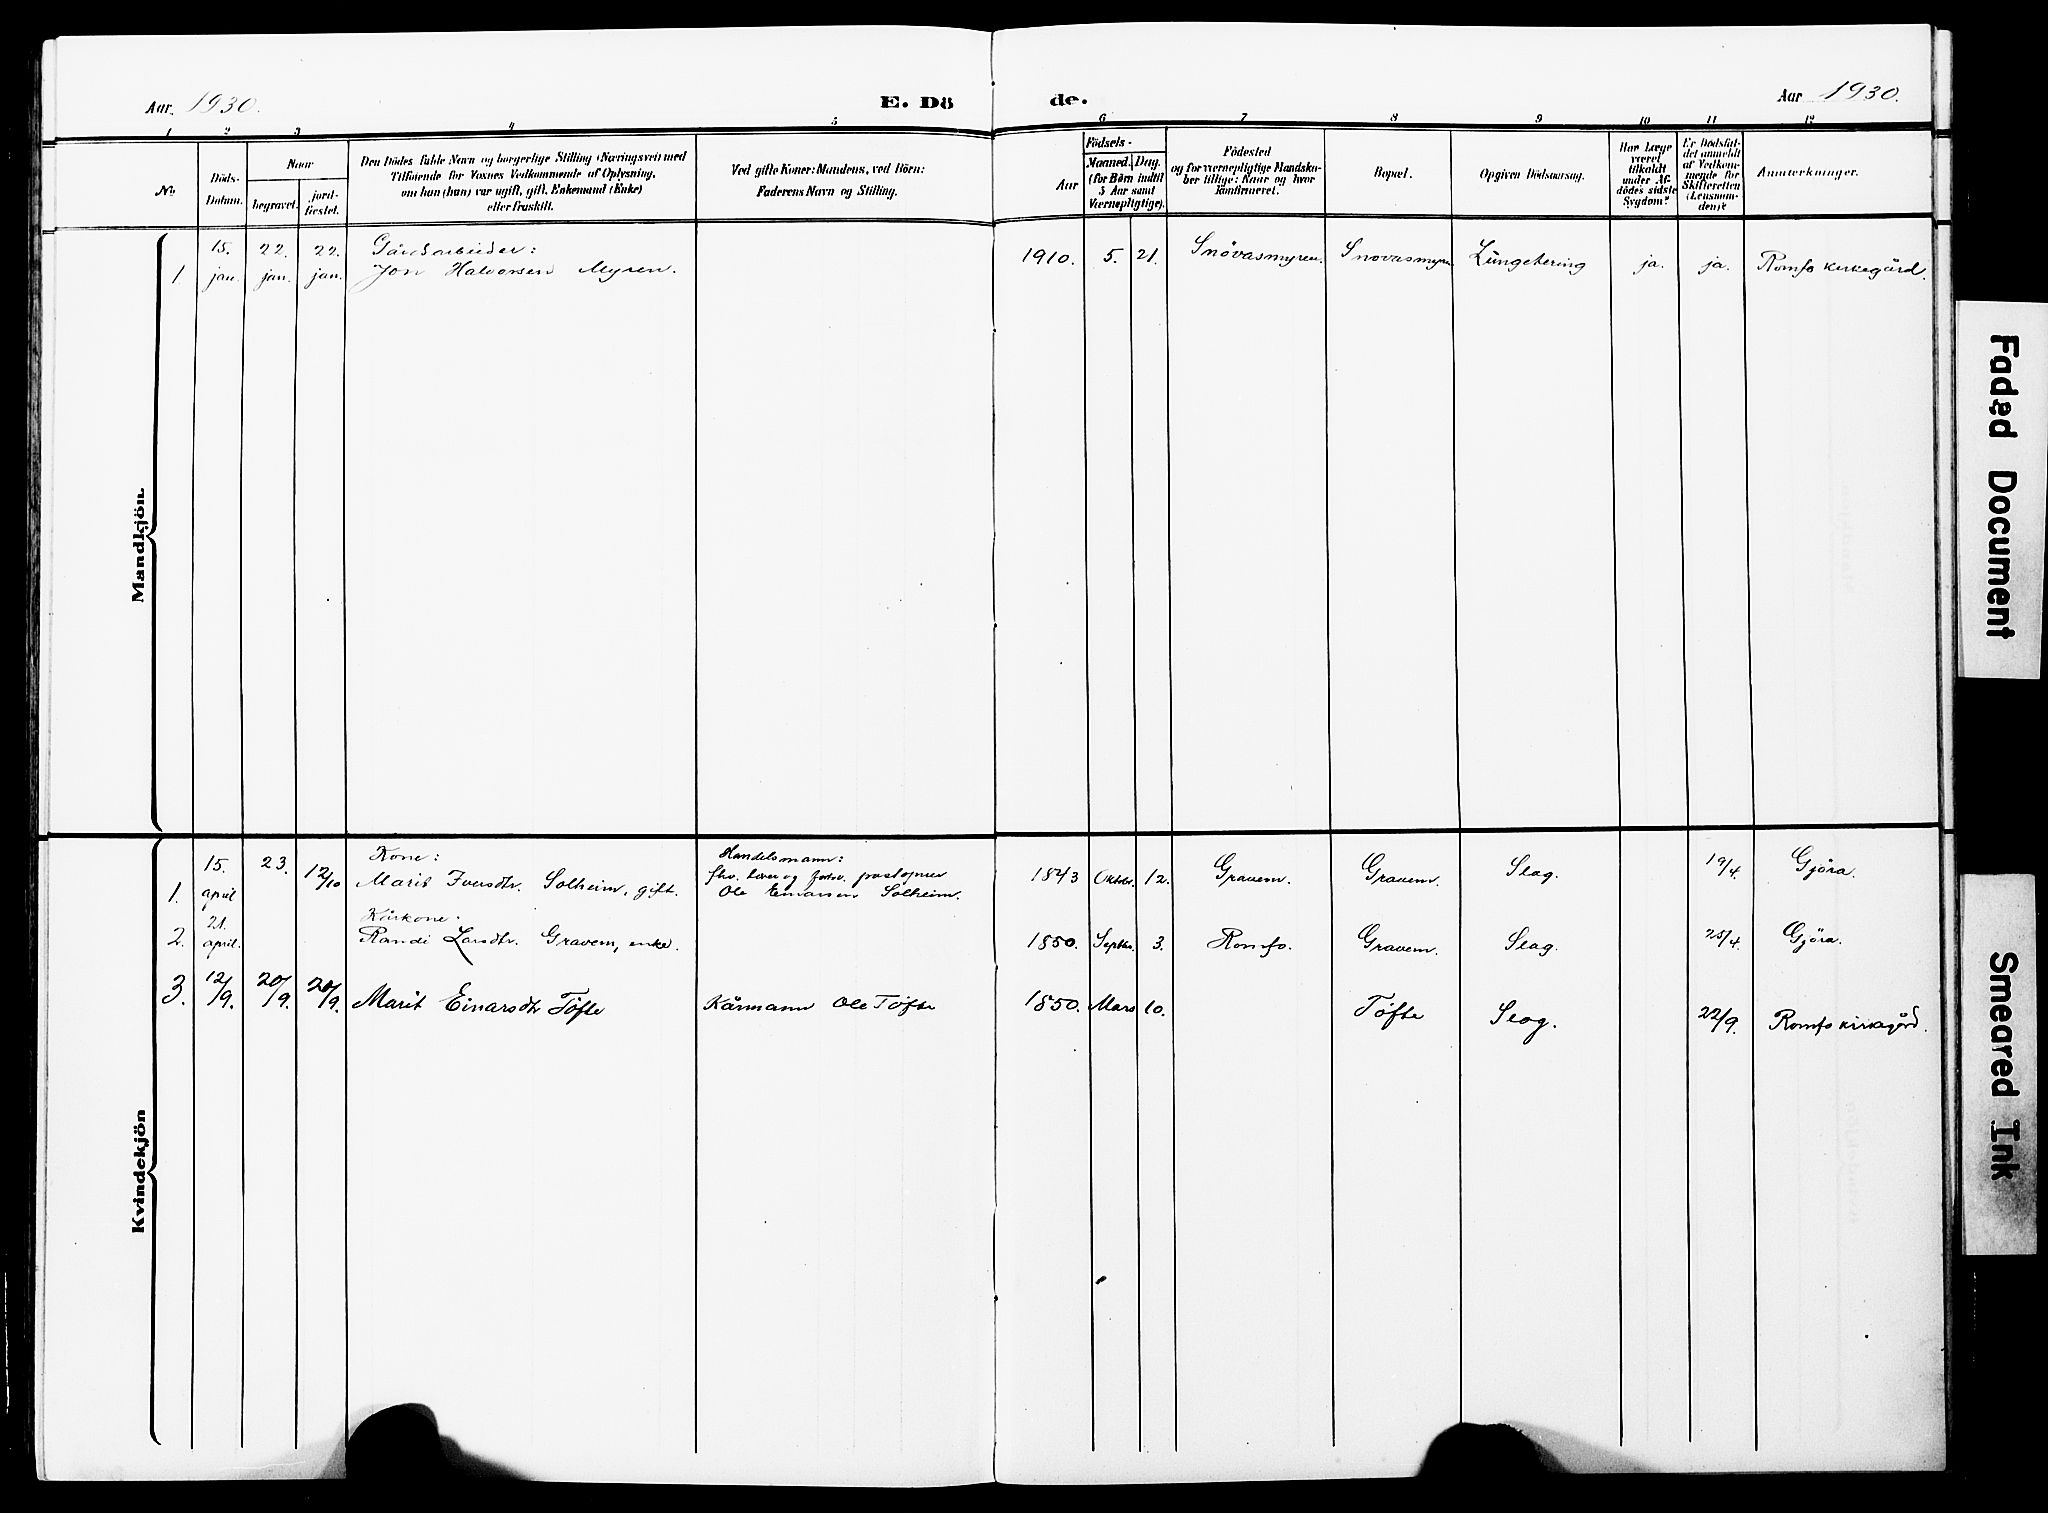 Aar 1930.
E. Dö
de.
Aar 1930.
1 2 3 4 5 6 7 8 9 10 11 12
No.
Döds-
Datum.
Naar
begravet.
jord-
fæstet.
Den Dödes fulde Navn og borgerlige Stilling (Næringsvei) med
Tilföiende for Voxnes Vedkommende af Oplysning,
om han (hun) var ugift, gift, Enkemand (Enke)
eller fraskilt.
Ved gifte Koner: Mandens, ved Börn:
Faderens Navn og Stilling.
Födsels-
Aar
Maaned. Dag.
(for Börn indtil
5 Aar samt
Værnepligtige).
Födested
og for værnepligtige Mandska-
ber tillige: Naar og hvor
konfirmeret.
Bopæl.
Opgiven Dödsaarsag.
Har Læge
været
tilkaldt
under Af-
dödes sidste
Sygdom?
Er Dödsfal-
det anmeldt
af Vedkom-
mende for
Skifteretten
(Lensman-
den)?
Anmærkninger.
Mandkjön.
1. 15. jan. 22. jan. 22. jan. Gårdsarbeider:
Jon Halvorsen Myren. 1910. 5. 21. Snövasmyren. Snovasmyren Lungetering ja. ja. Romfo kirkegård.
Kvindekjön
1. 15. april 23. 12/10 Kone:
Marit Iversdtr. Solheim, gift. Handelsmann:
fhv. lærer og postopner
Ole Einarsen Solheim. 1843 Oktbr. 12. Gravem. Gravem. Slag. 19/4. Gjöra.
2. 21. april. Kårkone:
Randi Larsdtr. Gravem, enke. 1850. Septbr. 3. Romfo. Gravem. Slag. 25/4. Gjöra.
3. 12/9. 20/9. 20/9. Marit Einarsdtr Tøfte Kårmann Ole Tøfte 1850. Mars 10. Tøfte Slag. 22/9. Romfo kirkegård.
Faded Document
Smeared Ink